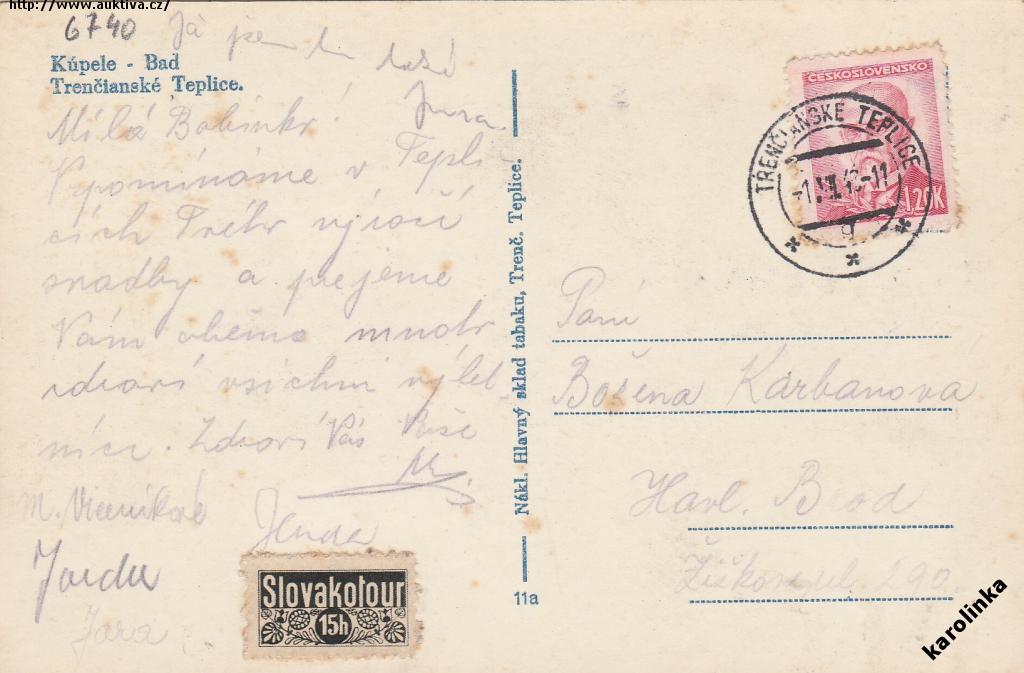 http://www.auktiva.cz/
6740
Já jsem tu také
Jura.
Kúpele - Bad
Trenčianské Teplice.
Milá Boženko!
Vzpomínáme v Tepli
cích Vašeho výročí
svatby a přejeme
Vám oběma mnoho
zdraví všichni výlet
níci. Zdraví Vás Vaše
M.
Jenda
Jarda
Jara
Slovakotour
15h
Nákl. Hlavný sklad tabaku, Trenč. Teplice.
11a
ČESKOSLOVENSKO
1.20K
TRENČIANSKE TEPLICE
Paní
Božena Karbanová
Havl. Brod
Žižkova ul. 290
karolinka